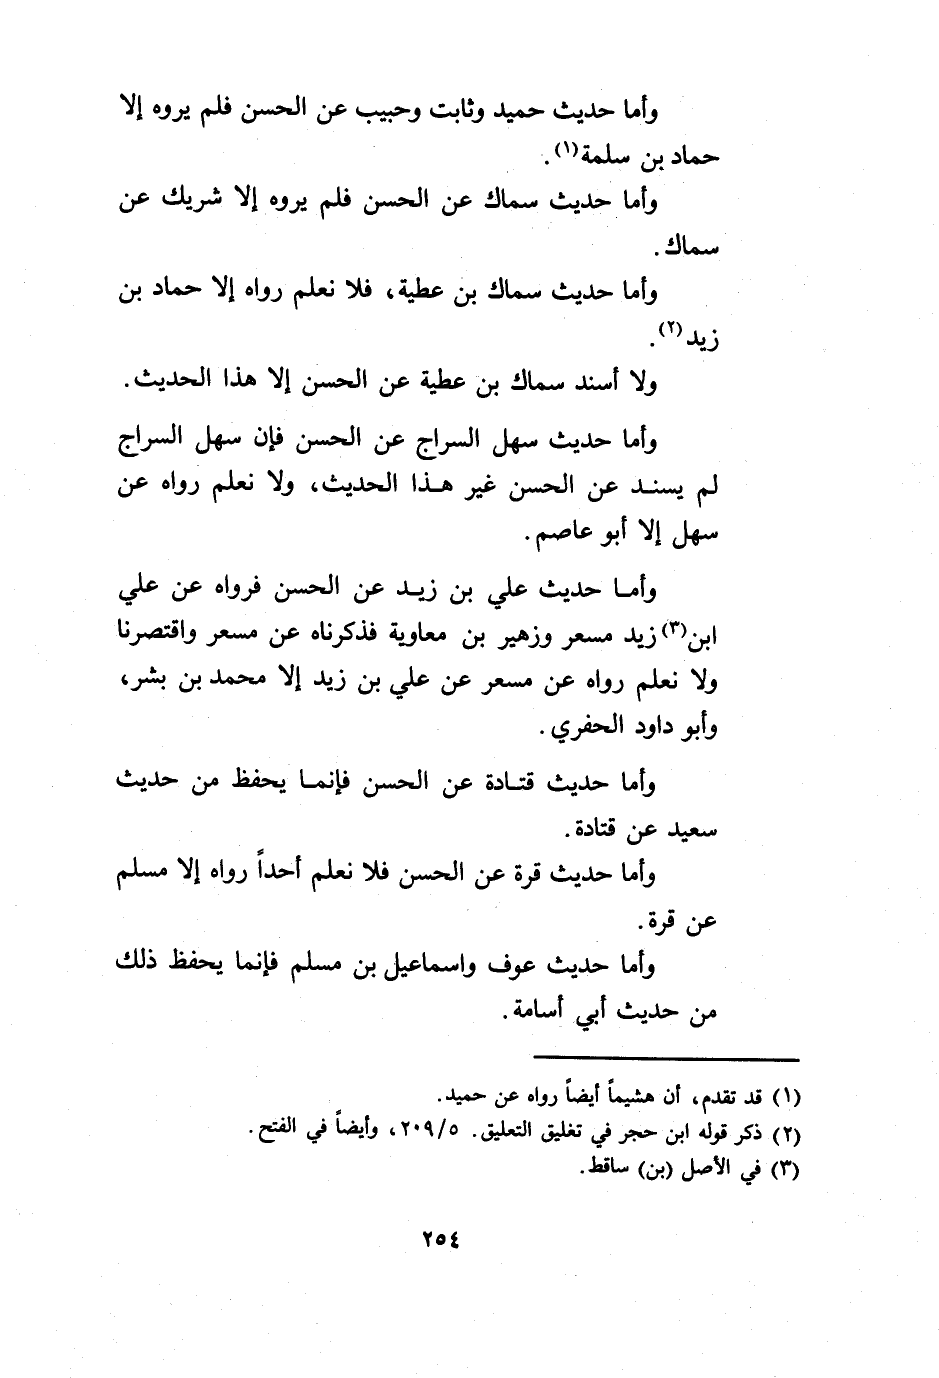 وأما حديث حميد وثابت وحبيب عن الحسن فلم يروه إلا
حماد بن سلمة(١).
وأما حديث سماك عن الحسن فلم يروه إلا شريك عن
سماك.
وأما حديث سماك بن عطية، فلا نعلم رواه إلا حماد بن
زيد(٢).
ولا أسند سماك بن عطية عن الحسن إلا هذا الحديث.
وأما حديث سهل السراج عن الحسن فإن سهل السراج
لم يسنـد عن الحسن غير هـذا الحديث، ولا نعلم رواه عن
سهل إلا أبو عاصم.
وأمـا حديث علي بن زيـد عن الحسن فرواه عن علي
ابن(٣) زيد مسعر وزهير بن معاوية فذكرناه عن مسعر واقتصرنا
ولا نعلم رواه عن مسعر عن علي بن زيد إلا محمد بن بشر،
وأبو داود الحفري.
وأما حديث قتـادة عن الحسن فإنمـا يحفظ من حديث
سعيد عن قتادة.
وأما حديث قرة عن الحسن فلا نعلم أحداً رواه إلا مسلم
عن قرة.
وأما حديث عوف واسماعيل بن مسلم فإنما يحفظ ذلك
من حديث أبي أسامة.
(١) قد تقدم، أن هشيماً أيضاً رواه عن حميد.
(٢) ذكر قوله ابن حجر في تغليق التعليق. ٢٠٩/٥، وأيضاً في الفتح.
(٣) في الأصل (بن) ساقط.
٢٥٤